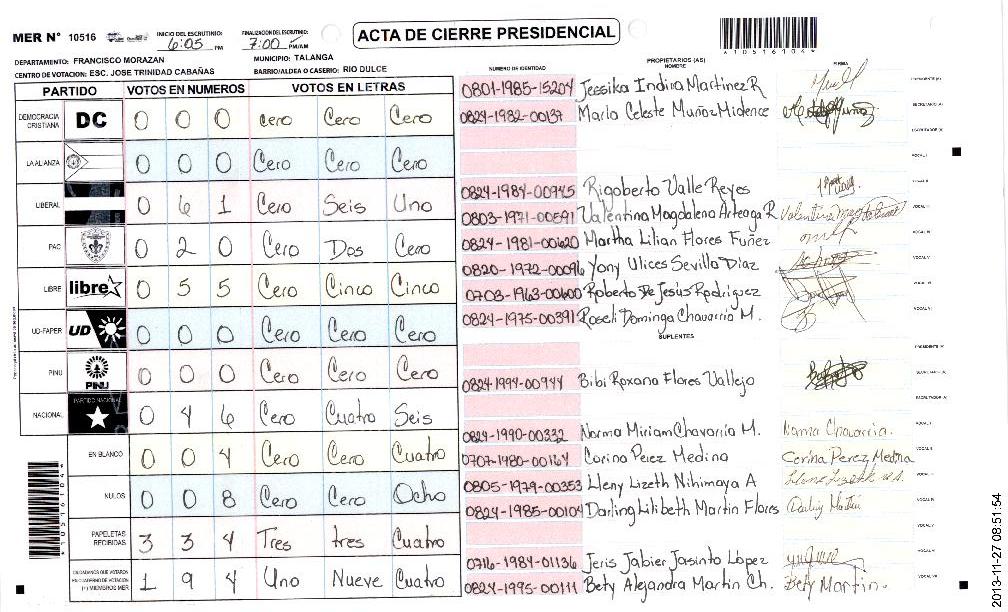 MER Nº 10516
INICIO DEL ESCRUTINIO 6:05 PM
FINALIZACION DEL ESCRUTINIO: 7:00 PM/AM
ACTA DE CIERRE PRESIDENCIAL
*10516104*
DEPARTAMENTO: FRANCISCO MORAZAN MUNICIPIO: TALANGA
CENTRO DE VOTACION: ESC. JOSE TRINIDAD CABAÑAS BARRIO/ALDEA O CASERIO: RIO DULCE
PARTIDO VOTOS EN NUMEROS VOTOS EN LETRAS
DEMOCRACIA CRISTIANA DC 0 0 0 Cero Cero Cero
LA ALIANZA 0 0 0 Cero Cero Cero
LIBERAL 0 6 1 Cero Seis Uno
PAC 0 2 0 Cero Dos Cero
LIBRE libre 0 5 5 Cero Cinco Cinco
UD-FAPER UD 0 0 0 Cero Cero Cero
PINU PINU 0 0 0 Cero Cero Cero
NACIONAL PARTIDO NACIONAL 0 4 6 Cero Cuatro Seis
EN BLANCO 0 0 4 Cero Cero Cuatro
NULOS 0 0 8 Cero Cero Ocho
PAPELETAS RECIBIDAS 3 3 4 Tres tres Cuatro
CIUDADANOS QUE VOTARON EN CUADERNO DE VOTACION (+) MIEMBROS MER 1 9 4 Uno Nueve Cuatro
*10516104*
PROPIETARIOS (AS)
NUMERO DE IDENTIDAD NOMBRE FIRMA
0801-1985-15204 Jessika Indira Martinez R PRESIDENTE (A)
0824-1982-00137 Maria Celeste Muñoz Midence SECRETARIO (A)
ESCRUTADOR (A)
VOCAL I
0824-1984-00945 Rigoberto Valle Reyes VOCAL II
0803-1971-00591 Valentina Magdalena Arteaga R VOCAL III
0824-1981-00620 Martha Lilian Flores Fuñez VOCAL IV
0820-1972-00096 Yony Ulices Sevilla Diaz VOCAL V
0703-1963-00600 Roberto De Jesús Rodriguez VOCAL VI
0824-1975-00391 Roseli Domingo Chavarria M.
SUPLENTES
PRESIDENTE (A)
0824-1994-00944 Bibi Roxana Flores Vallejo SECRETARIO (A)
ESCRUTADOR (A)
0824-1990-00332 Norma Miriam Chavarria M. Norma Chavarria.
0707-1980-00164 Corina Perez Medina Corina Perez Medina
0805-1979-00353 Lleny Lizeth Nihimaya A
0824-1985-00104 Darling Lilibeth Martin Flores Darling Martin
0716-1984-01136 Jeris Jabier Jasinto López
0824-1995-00111 Bety Alejandra Martin Ch. Bety Martin.
2013-11-27 08:51:54